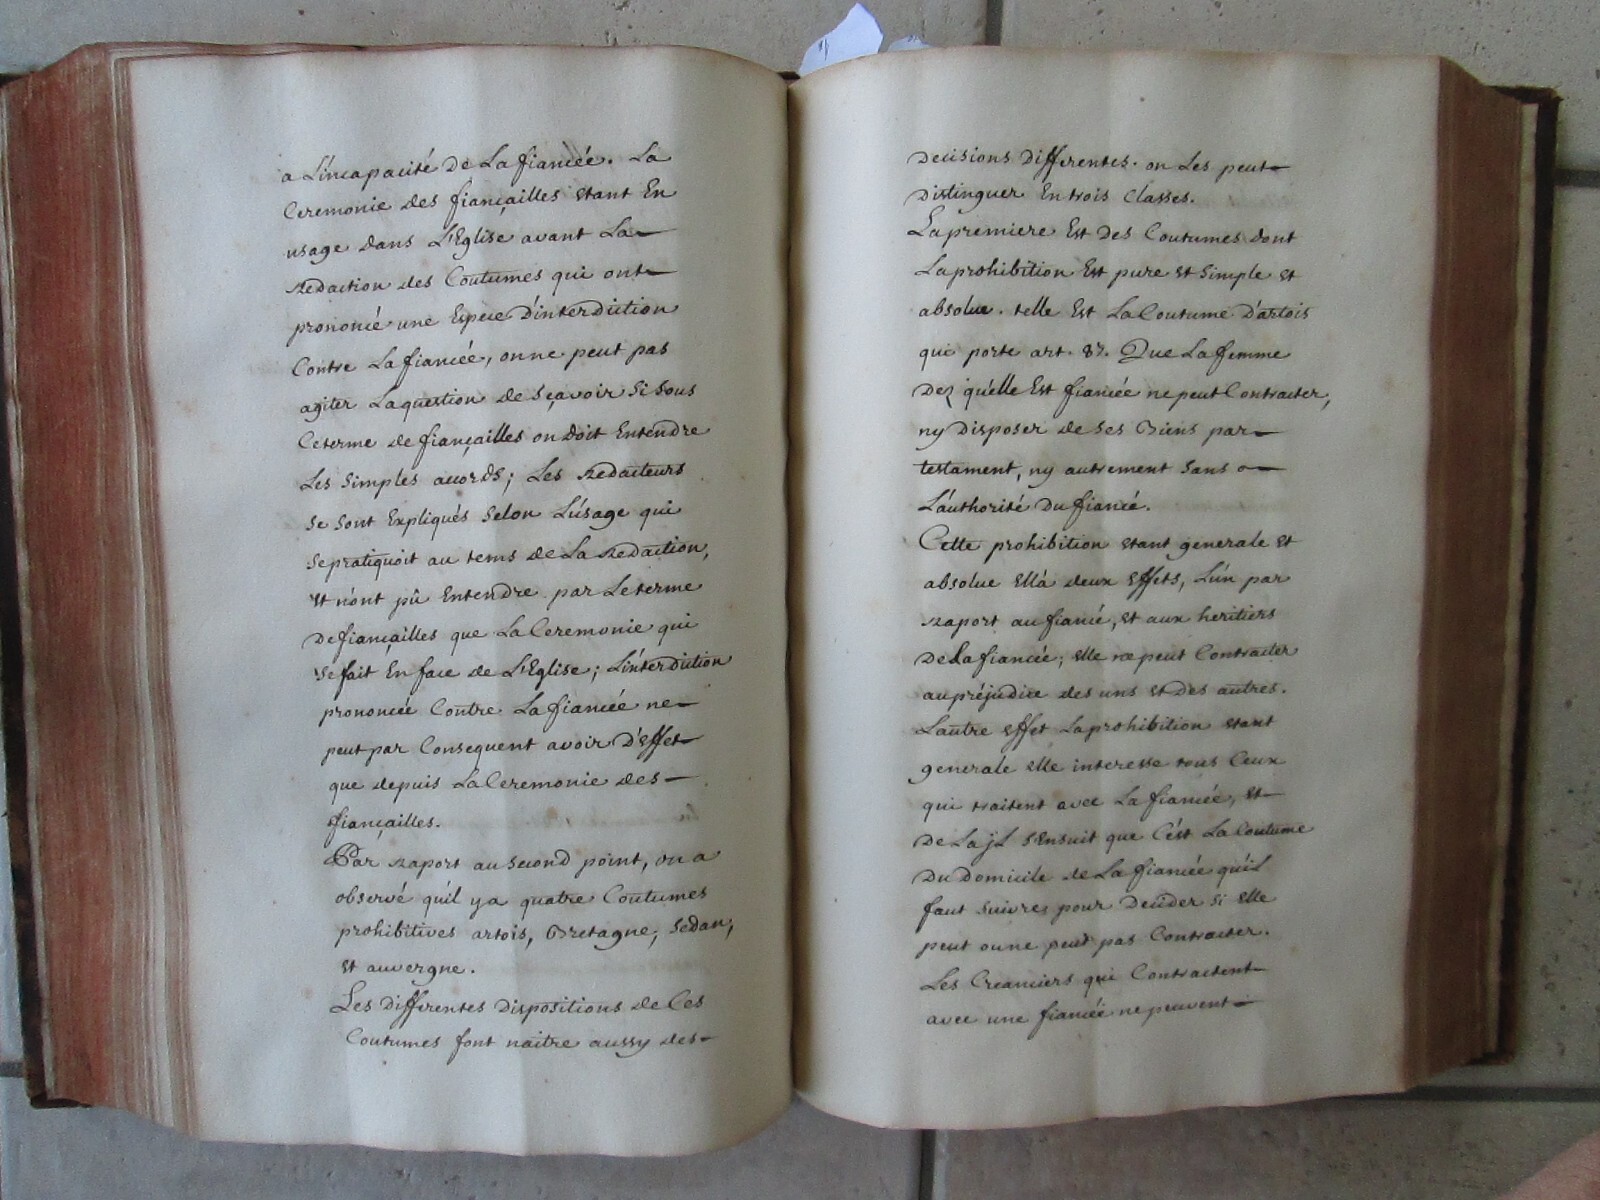 a L'incapacité de La fiancée. La
Ceremonie des fiançailles Etant En
usage dans L'Eglise avant La
Redaction des Coutumes qui ont
prononcé une Espece D'interdiction
Contre La fiancée, on ne peut pas
agiter La question de Sçavoir Si Sous
Ce terme de fiançailles on doit Entendre
Les Simples acords; Les Redacteurs
Se Sont Expliqués Selon L'usage qui
Se pratiquoit au tems de La Redaction,
Et n'ont pû Entendre par Le terme
De fiançailles que La Ceremonie qui
Se fait En face de L'Eglise; L'interdiction
prononcée Contre La fiancée ne
peut par Consequent avoir D'Effet
que depuis La Ceremonie des
fiançailles.
Par Raport au Second point, on a
observé qu'il y a quatre Coutumes
prohibitives artois, Bretagne, Sedan,
Et auvergne.
Les Differentes Dispositions de Ces
Coutumes font naitre aussy des
Decisions Differentes. on Les peut
Distinguer En trois Classes.
La premiere Est Des Coutumes dont
La prohibition Est pure Et Simple Et
absolue. telle Est La Coutume D'artois
qui porte art. 87. Que La femme
Dez qu'elle Est fiancée ne peut Contracter,
ny Disposer de Ses Biens par
testament, ny autrement Sans
L'authorité Du fiancé.
Cette prohibition Etant generale Et
absolue Ell'a deux Effets, L'un par
Raport au fiancé, Et aux heritiers
De La fiancée; Elle ne peut Contracter
au préjudice des uns Et Des autres.
L'autre Effet La prohibition Etant
generale Elle interesse tous Ceux
qui traitent avec La fiancée, Et
De La jl S'Ensuit que C'est La Coutume
Du Domicile de La fiancée qu'il
faut Suivre pour Decider Si Elle
peut ou ne peut pas Contracter.
Les Creanciers qui Contractent
avec une fiancée ne peuvent